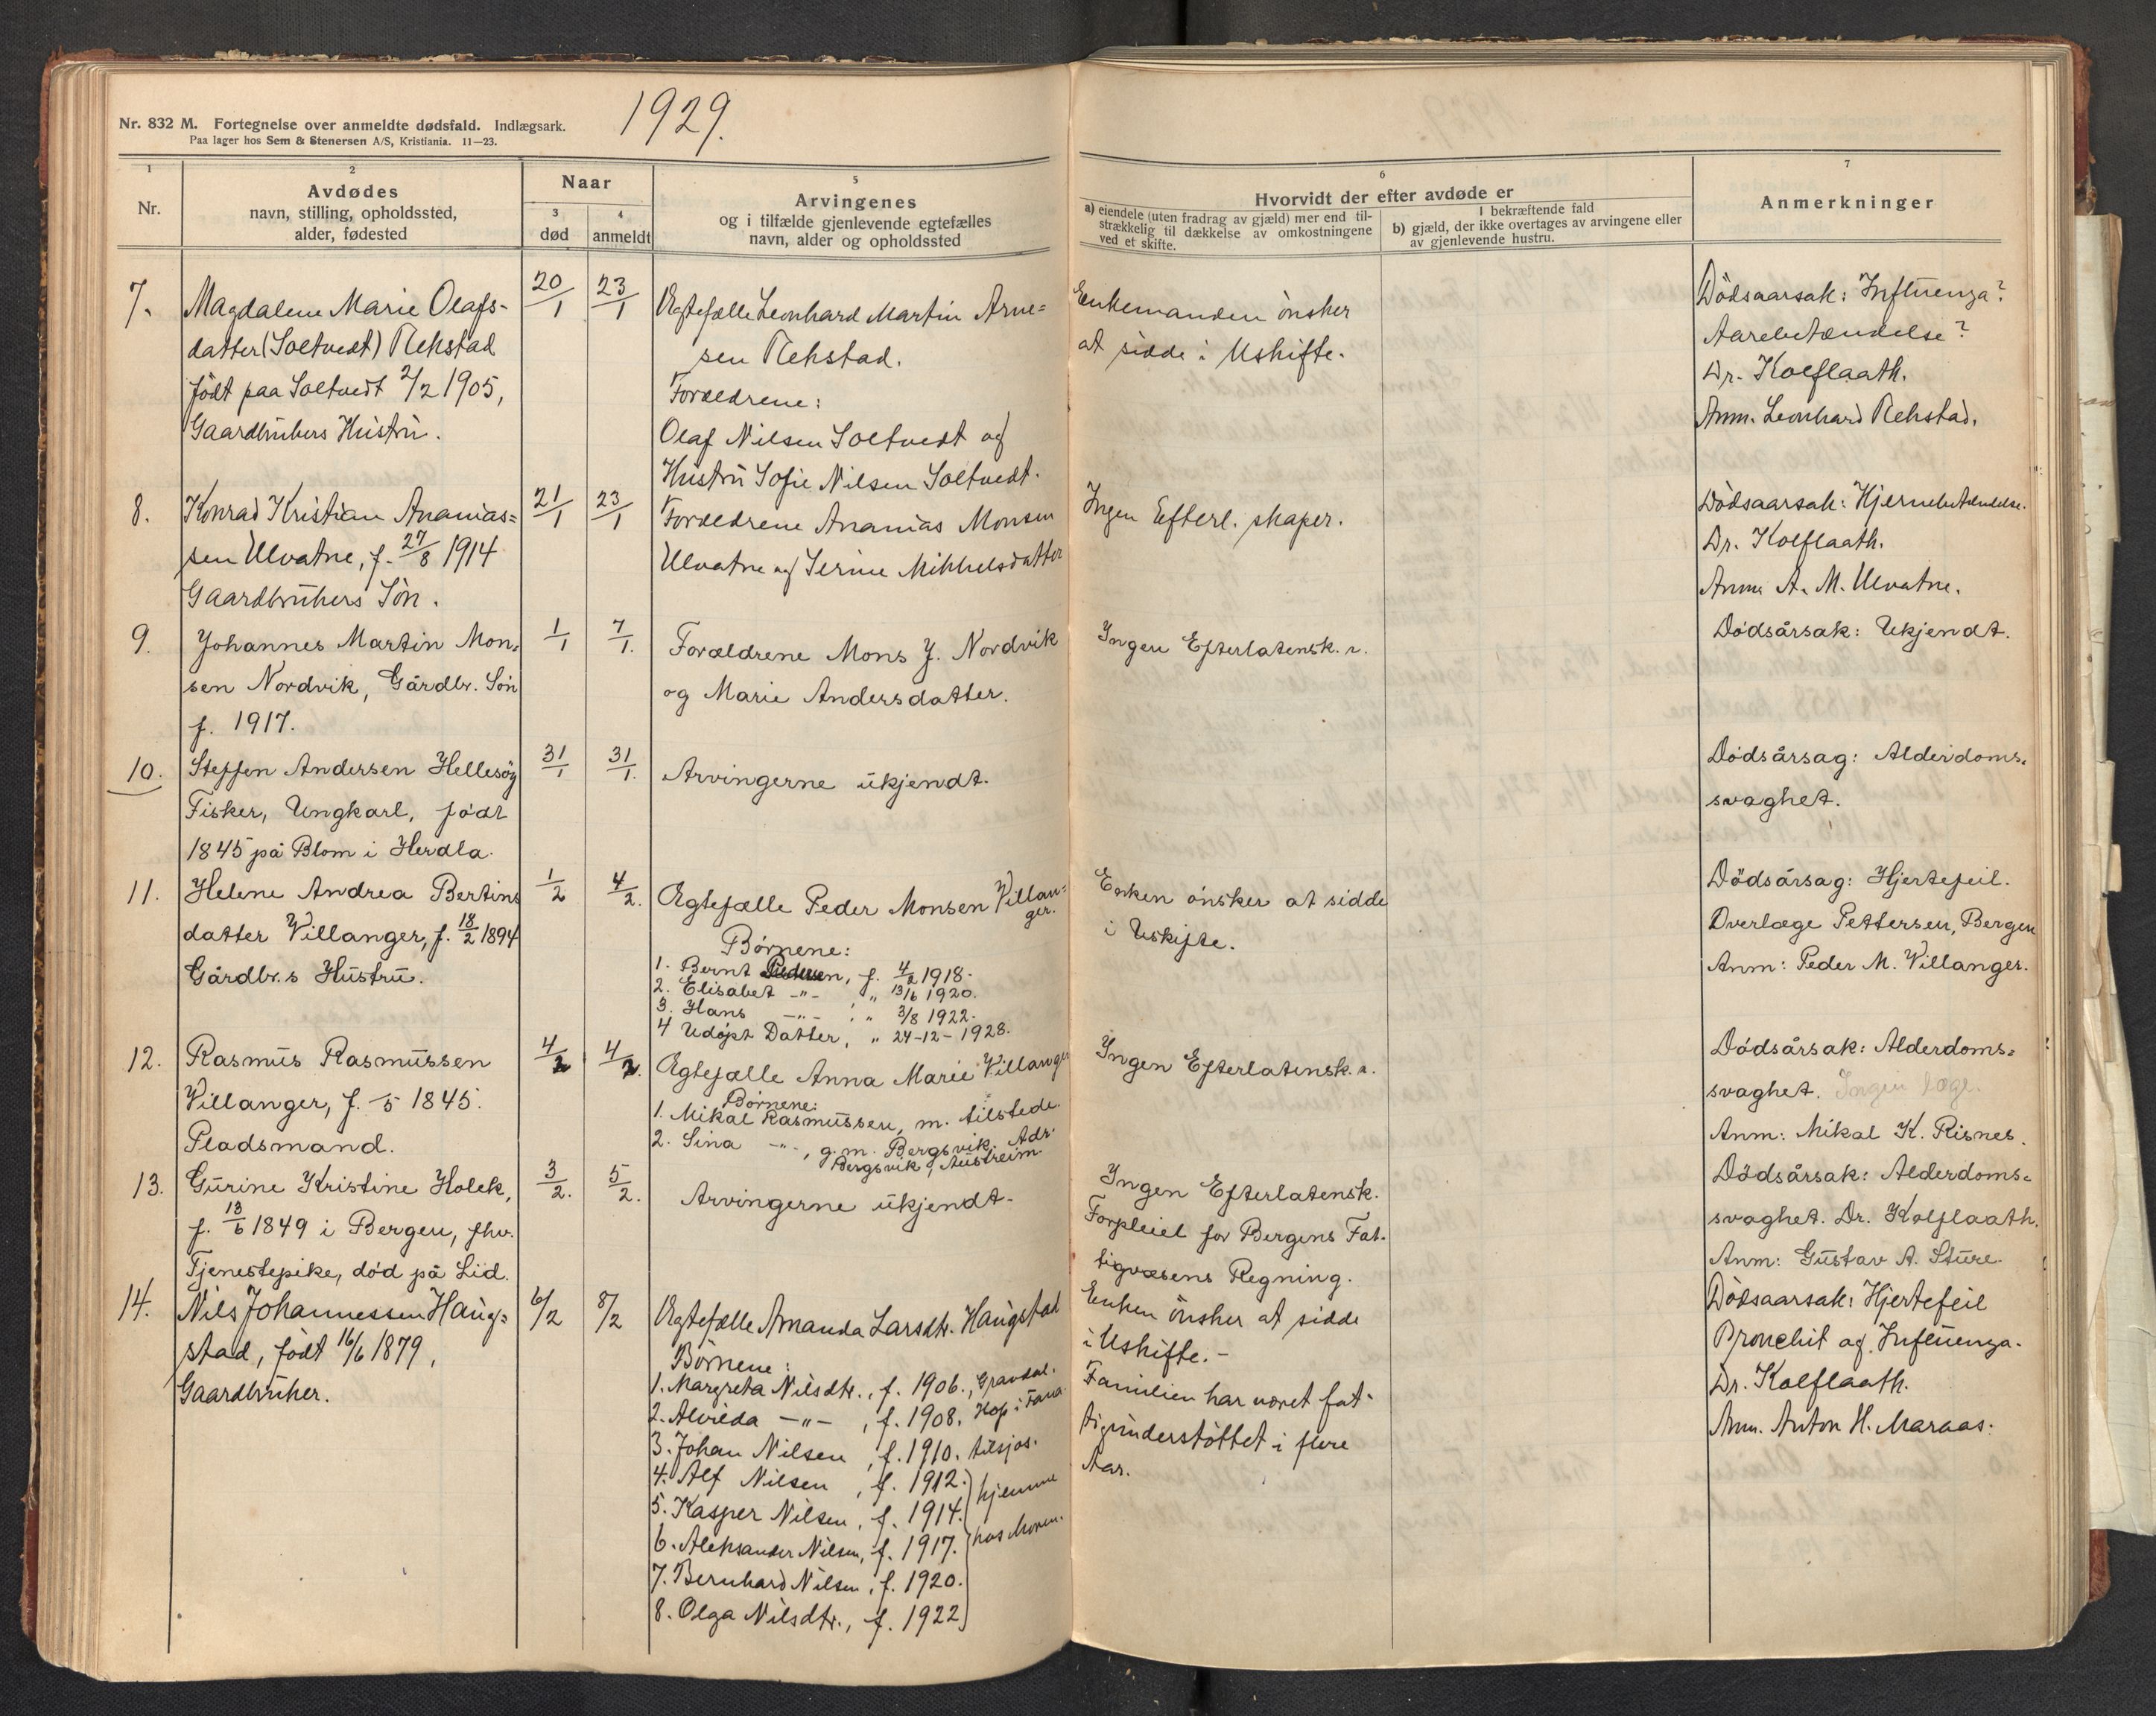 Nr. 832 M. Fortegnelse over anmeldte dødsfald. Indlægsark.
Paa lager hos Sem & Stenersen A/S, Kristiania. 11—23.
1929.
1
Nr.
2
Avdødes
navn, stilling, opholdssted,
alder, fødested
Naar
3
død
4
anmeldt
5
Arvingenes
og i tilfælde gjenlevende egtefælles
navn, alder og opholdssted
6
Hvorvidt der efter avdøde er
a) eiendele (uten fradrag av gjæld) mer end til-
strækkelig til dækkelse av omkostningene
ved et skifte.
I bekræftende fald
b) gjæld, der ikke overtages av arvingene eller
av gjenlevende hustru.
7
Anmerkninger
7.
Magdalene Marie Olafs-
datter (Soltvedt) Rekstad
födt paa Soltvedt 2/2 1905,
Gaardbrukers Hustru.
20/1
23/1
Egtefælle Leonhard Martin Arne=
sen Rekstad.
Forældrene:
Olaf Nilsen Soltvedt og
Hustru Sofie Nilsen Soltvedt.
Enkemanden önsker
at sidde i Uskifte.
Dödsaarsak: Influenza?
Aarebetændelse?
Dr. Kolflaath.
Anm. Leonhard Rekstad.
8.
Konrad Kristian Ananias=
sen Ulvatne, f. 27/8 1914
Gaardbrukers Sön.
21/1
23/1
Forældrene Ananias Monsen
Ulvatne og Serine Mikkelsdatter
Ingen Efterl. skaper.
Dödsaarsak: Hjernebetændelse.
Dr. Kolflaath.
Anm. A. M. Ulvatne.
9.
Johannes Martin Mon=
sen Nordvik, Gårdbr. Sön
f. 1917.
1/1
7/1.
Forældrene Mons J. Nordvik
og Marie Andersdatter.
Ingen Efterlatensk. r.
Dödsårsak: Ukjendt.
10.
Steffen Andersen Hellesöy
Fisker, Ungkarl, födt
1845 på Blom i Herdla.
31/1
31/1.
Arvingerne ukjendt.
Dödsårsag: Alderdoms=
svaghet.
11.
Helene Andrea Bertins
datter Villanger, f. 18/2 1894
Gårdbr.s Hustru.
1/2
4/2.
Egtefælle Peder Monsen Villan=
ger.
Börnene:
1. Bernt Pedersen, f. 4/2 1918.
2. Elisabet -"- " 13/6 1920.
3. Hans -"- " 3/8 1922.
4 Udöpt Datter, " 24-12-1928.
Enken önsker at sidde
i Uskifte.
Dödsårsag: Hjertefeil.
Overlæge Pettersen, Bergen
Anm: Peder M. Villanger.
12.
Rasmus Rasmussen
Villanger, f. /5 1845.
Pladsmand.
4/2
4/2.
Egtefælle Anna Marie Villanger
Börnene:
1. Mikal Rasmussen, m. tilstede.
2. Sina -"-, g.m. Bergsvik. Adr.
Bergsvik, Austreim.
Ingen Efterlatensk. r.
Dödsårsak: Alderdoms=
svaghet. Ingen læge.
Anm: Mikal K. Risnes.
13.
Gurine Kristine Holck,
f. 13/6 1849 i Bergen, fhv.
Tjenestepike, död på Lid.
3/2.
5/2.
Arvingerne ukjendt.
Ingen Efterlatensk.
Forpleiel for Bergens Fat-
tigvæsens Regning.
Dödsårsak: Alderdoms=
svaghet. Dr. Kolflaath.
Anm: Gustav A. Sture.
14.
Nils Johannessen Haug=
stad, födt 16/6 1879,
Gaardbruker.
6/2
8/2
Egtefælle Amanda Larsdtr. Haugstad
Börnene:
1. Margreta Nilsdtr., f. 1906., Gravdal.
2. Alvilda -"-, f. 1908. Hop i Fana
3. Johan Nilsen, f. 1910. tilsjøs.
4. Alf Nilsen, f. 1912.} hjemme
5. Kasper Nilsen, f. 1914.
6. Aleksander Nilsen, f. 1917. } hos Moren.
7. Bernhard Nilsen, f. 1920.
8. Olga Nilsdtr., f. 1922
Enken önsker at sidde
i Uskifte.-
Familien har været fat-
tigunderstöttet i flere
Aar.
Dödsaarsak: Hjertefeil
Bronchit og Influenza.
Dr. Kolflaath.
Anm. Anton H. Maraas.